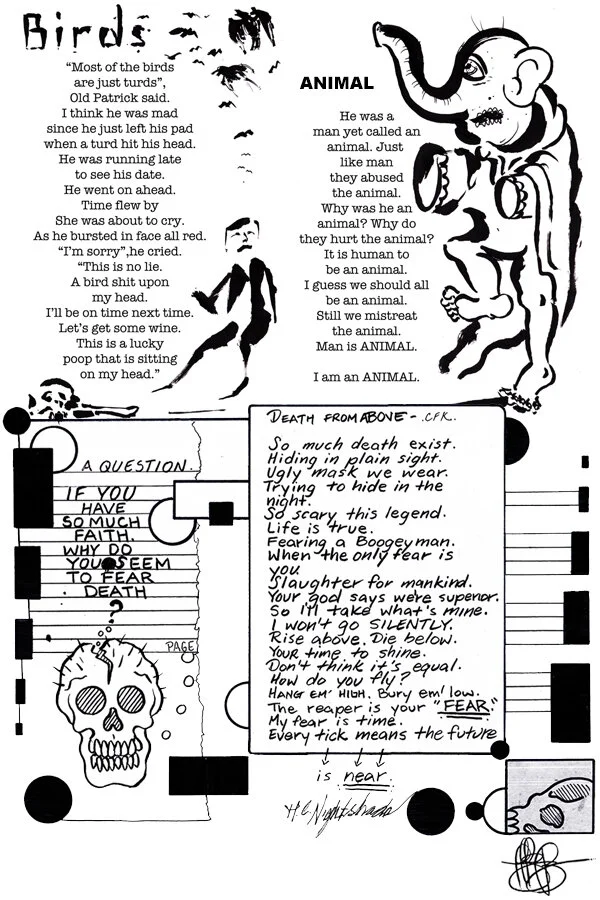 Birds
“Most of the birds
are just turds”,
Old Patrick said.
I think he was mad
since he just left his pad
when a turd hit his head.
He was running late
to see his date.
He went on ahead.
Time flew by
She was about to cry.
As he bursted in face all red.
“I'm sorry”,he cried.
“This is no lie.
A bird shit upon
my head.
I'll be on time next time.
Let's get some wine.
This is a lucky
poop that is sitting
on my head.”
ANIMAL
He was a
man yet called an
animal. Just
like man
they abused
the animal.
Why was he an
animal? Why do
they hurt the animal?
It is human to
be an animal.
I guess we should all
be an animal.
Still we mistreat
the animal.
Man is ANIMAL.
I am an ANIMAL.
A QUESTION.
IF YOU
HAVE
SO MUCH
FAITH.
WHY DO
YOU SEEM
TO FEAR
DEATH
?
PAGE
DEATH FROM ABOVE - .CFK.
So much death exist.
Hiding in plain sight.
Ugly mask we wear.
Trying to hide in the
night.
So scary this legend.
Life is true.
Fearing a Boogeyman.
When the only fear is
you.
Slaughter for mankind.
Your god says we're superior.
So I'll take what's mine.
I won't go SILENTLY.
Rise above. Die below.
Your time to shine.
Don't think it's equal.
How do you fly?
HANG EM' HIGH. Bury em' low.
The reaper is your "FEAR."
My fear is time.
Every tick means the future
is near.
H.C Nightshade